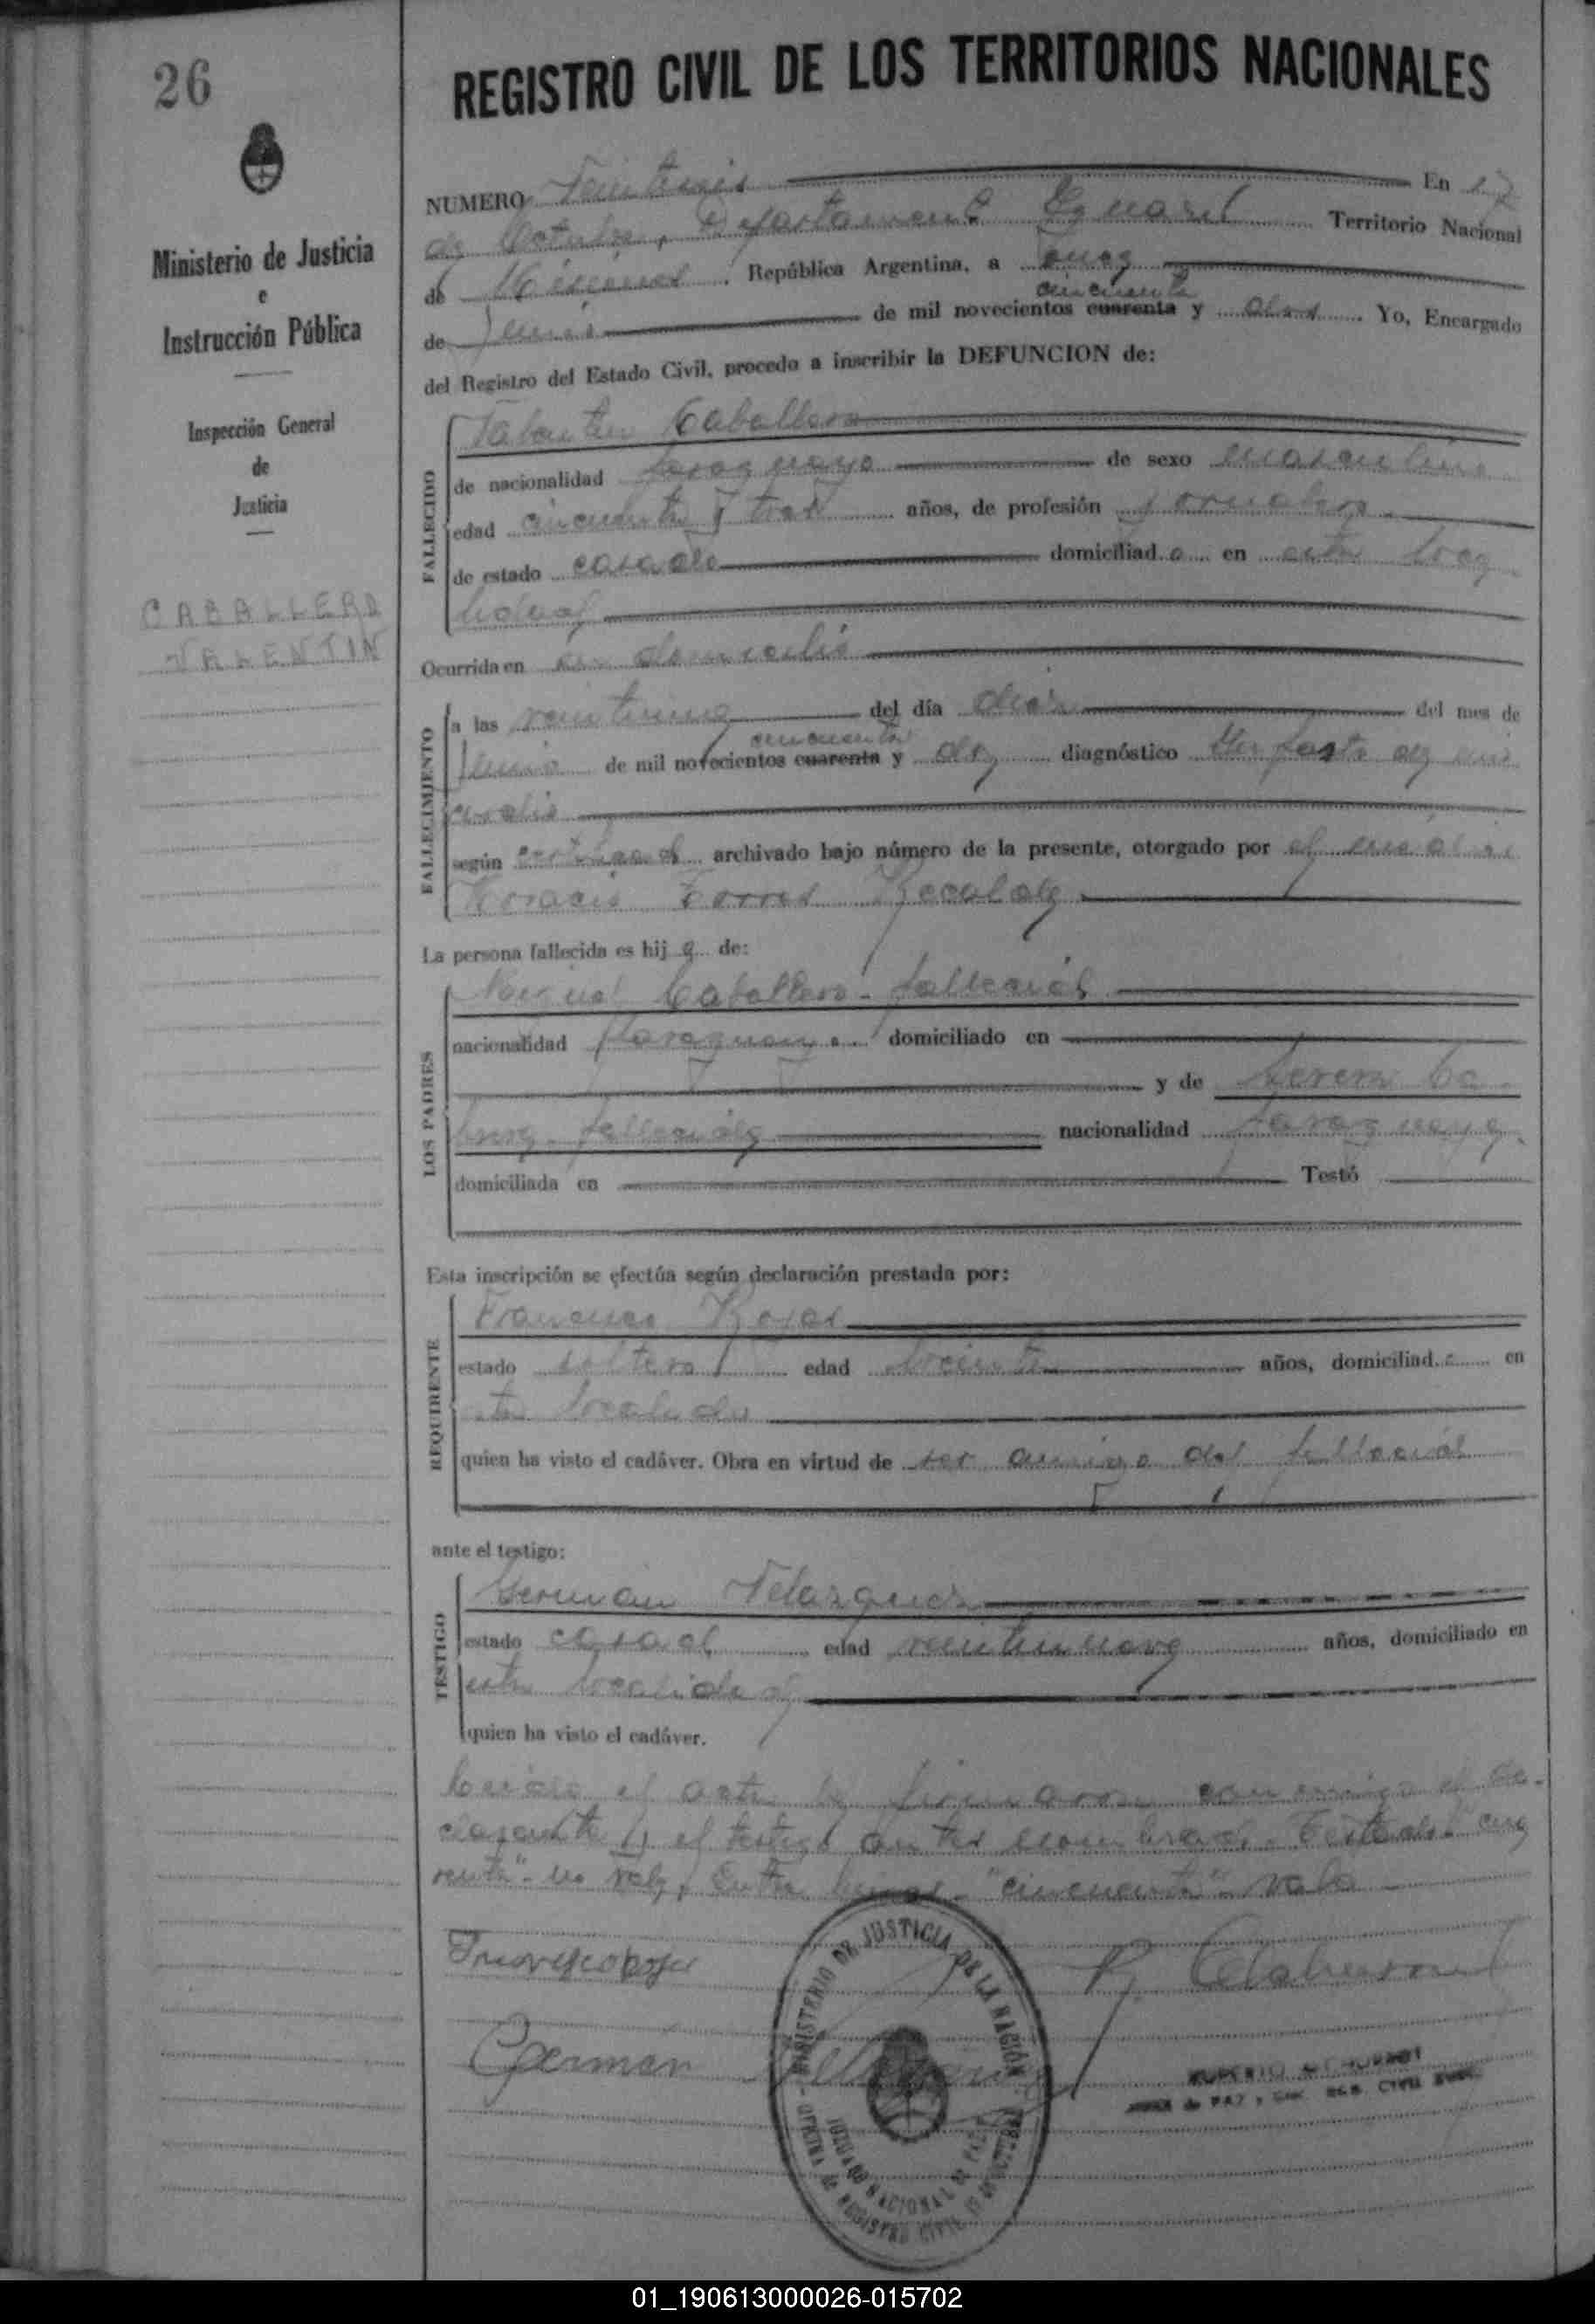 26
Ministerio de Justicia
e
Instrucción Pública
Inspección General
de
Justicia
CABALLERO
VALENTIN
REGISTRO CIVIL DE LOS TERRITORIOS NACIONALES
NUMERO Veintiseis En 17
de Octubre, Departamento Iguazú Territorio Nacional
de Misiones, República Argentina, a once
cincuenta
de Junio de mil novecientos cuarenta y dos Yo, Encargado
del Registro del Estado Civil, procedo a inscribir la DEFUNCION de:
FALLECIDO
Valentin Caballero
de nacionalidad paraguayo de sexo masculino
edad cincuenta y tres años, de profesión jornalero
de estado casado domiciliado en esta loca
lidad
Ocurrida en su domicilio
FALLECIMIENTO
a las veintiuna del día diez del mes de
cincuenta
Junio de mil novecientos cuarenta y dos diagnóstico Infarto de mio
cardio
según certificado archivado bajo número de la presente, otorgado por el medico
Horacio Torres Recalde
La persona fallecida es hijo de:
LOS PADRES
Caballero - fallecido
nacionalidad paraguaya domiciliado en
y de
fallecida nacionalidad paraguaya
domiciliada en Testó
Esta inscripción se efectúa según declaración prestada por:
REQUIRENTE
Francisco Rojas
estado soltero edad años, domiciliado en
esta localidad
quien ha visto el cadáver. Obra en virtud de ser amigo del fallecido
ante el testigo:
TESTIGO
German Velazquez
estado casado edad veintinueve años, domiciliado en
esta localidad
quien ha visto el cadáver.
Leida el acta la firmaron conmigo el de-
clarante y el testigo antes nombrado. Testado "cua
renta" - no vale, Entre lineas - "cincuenta" - vale
German
MINISTERIO DE JUSTICIA DE LA NACIÓN
JUZGADO NACIONAL DE PAZ
OFICINA DE REGISTRO CIVIL
JUEZ de PAZ y ENC. REG. CIVIL
01_190613000026-015702